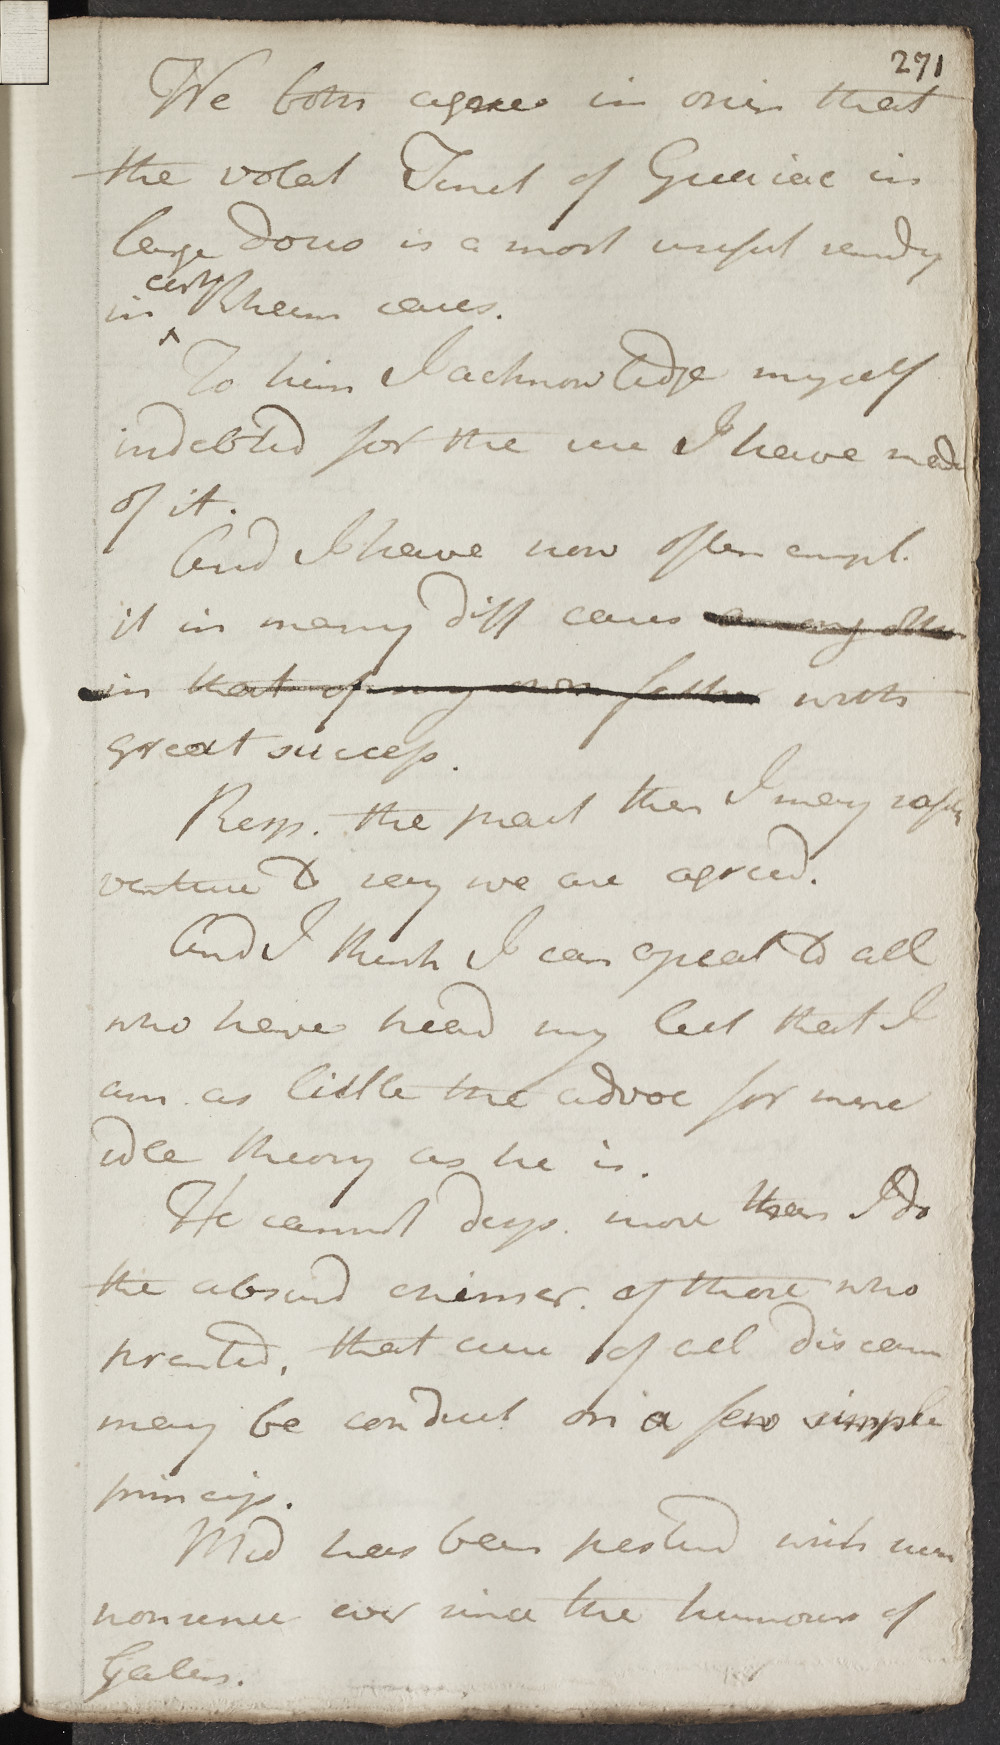 271
We both agree in onin that
the volat Tinct of Guaiac in
large doses is a most useful remdy
cert
in Rheum cases.
To him I acknowledge myself
indebted for the use I have made
of it.
And I have now often empl.
it in many diff cases among other
in that of my own father with
great success.
Resp. the pract then I may safely
venture to say we are agreed.
And I think I can apeal to all
who have head my lect that I
am as little the advoc for mere
idle theory as he is.
He cannot desp. more than I do
the absurd chimer. of those who
pretend, that cure of all diseases
may be conduct on a few simple
princip.
Med has been pestered with
nonsense ever since the humours of
Galen.